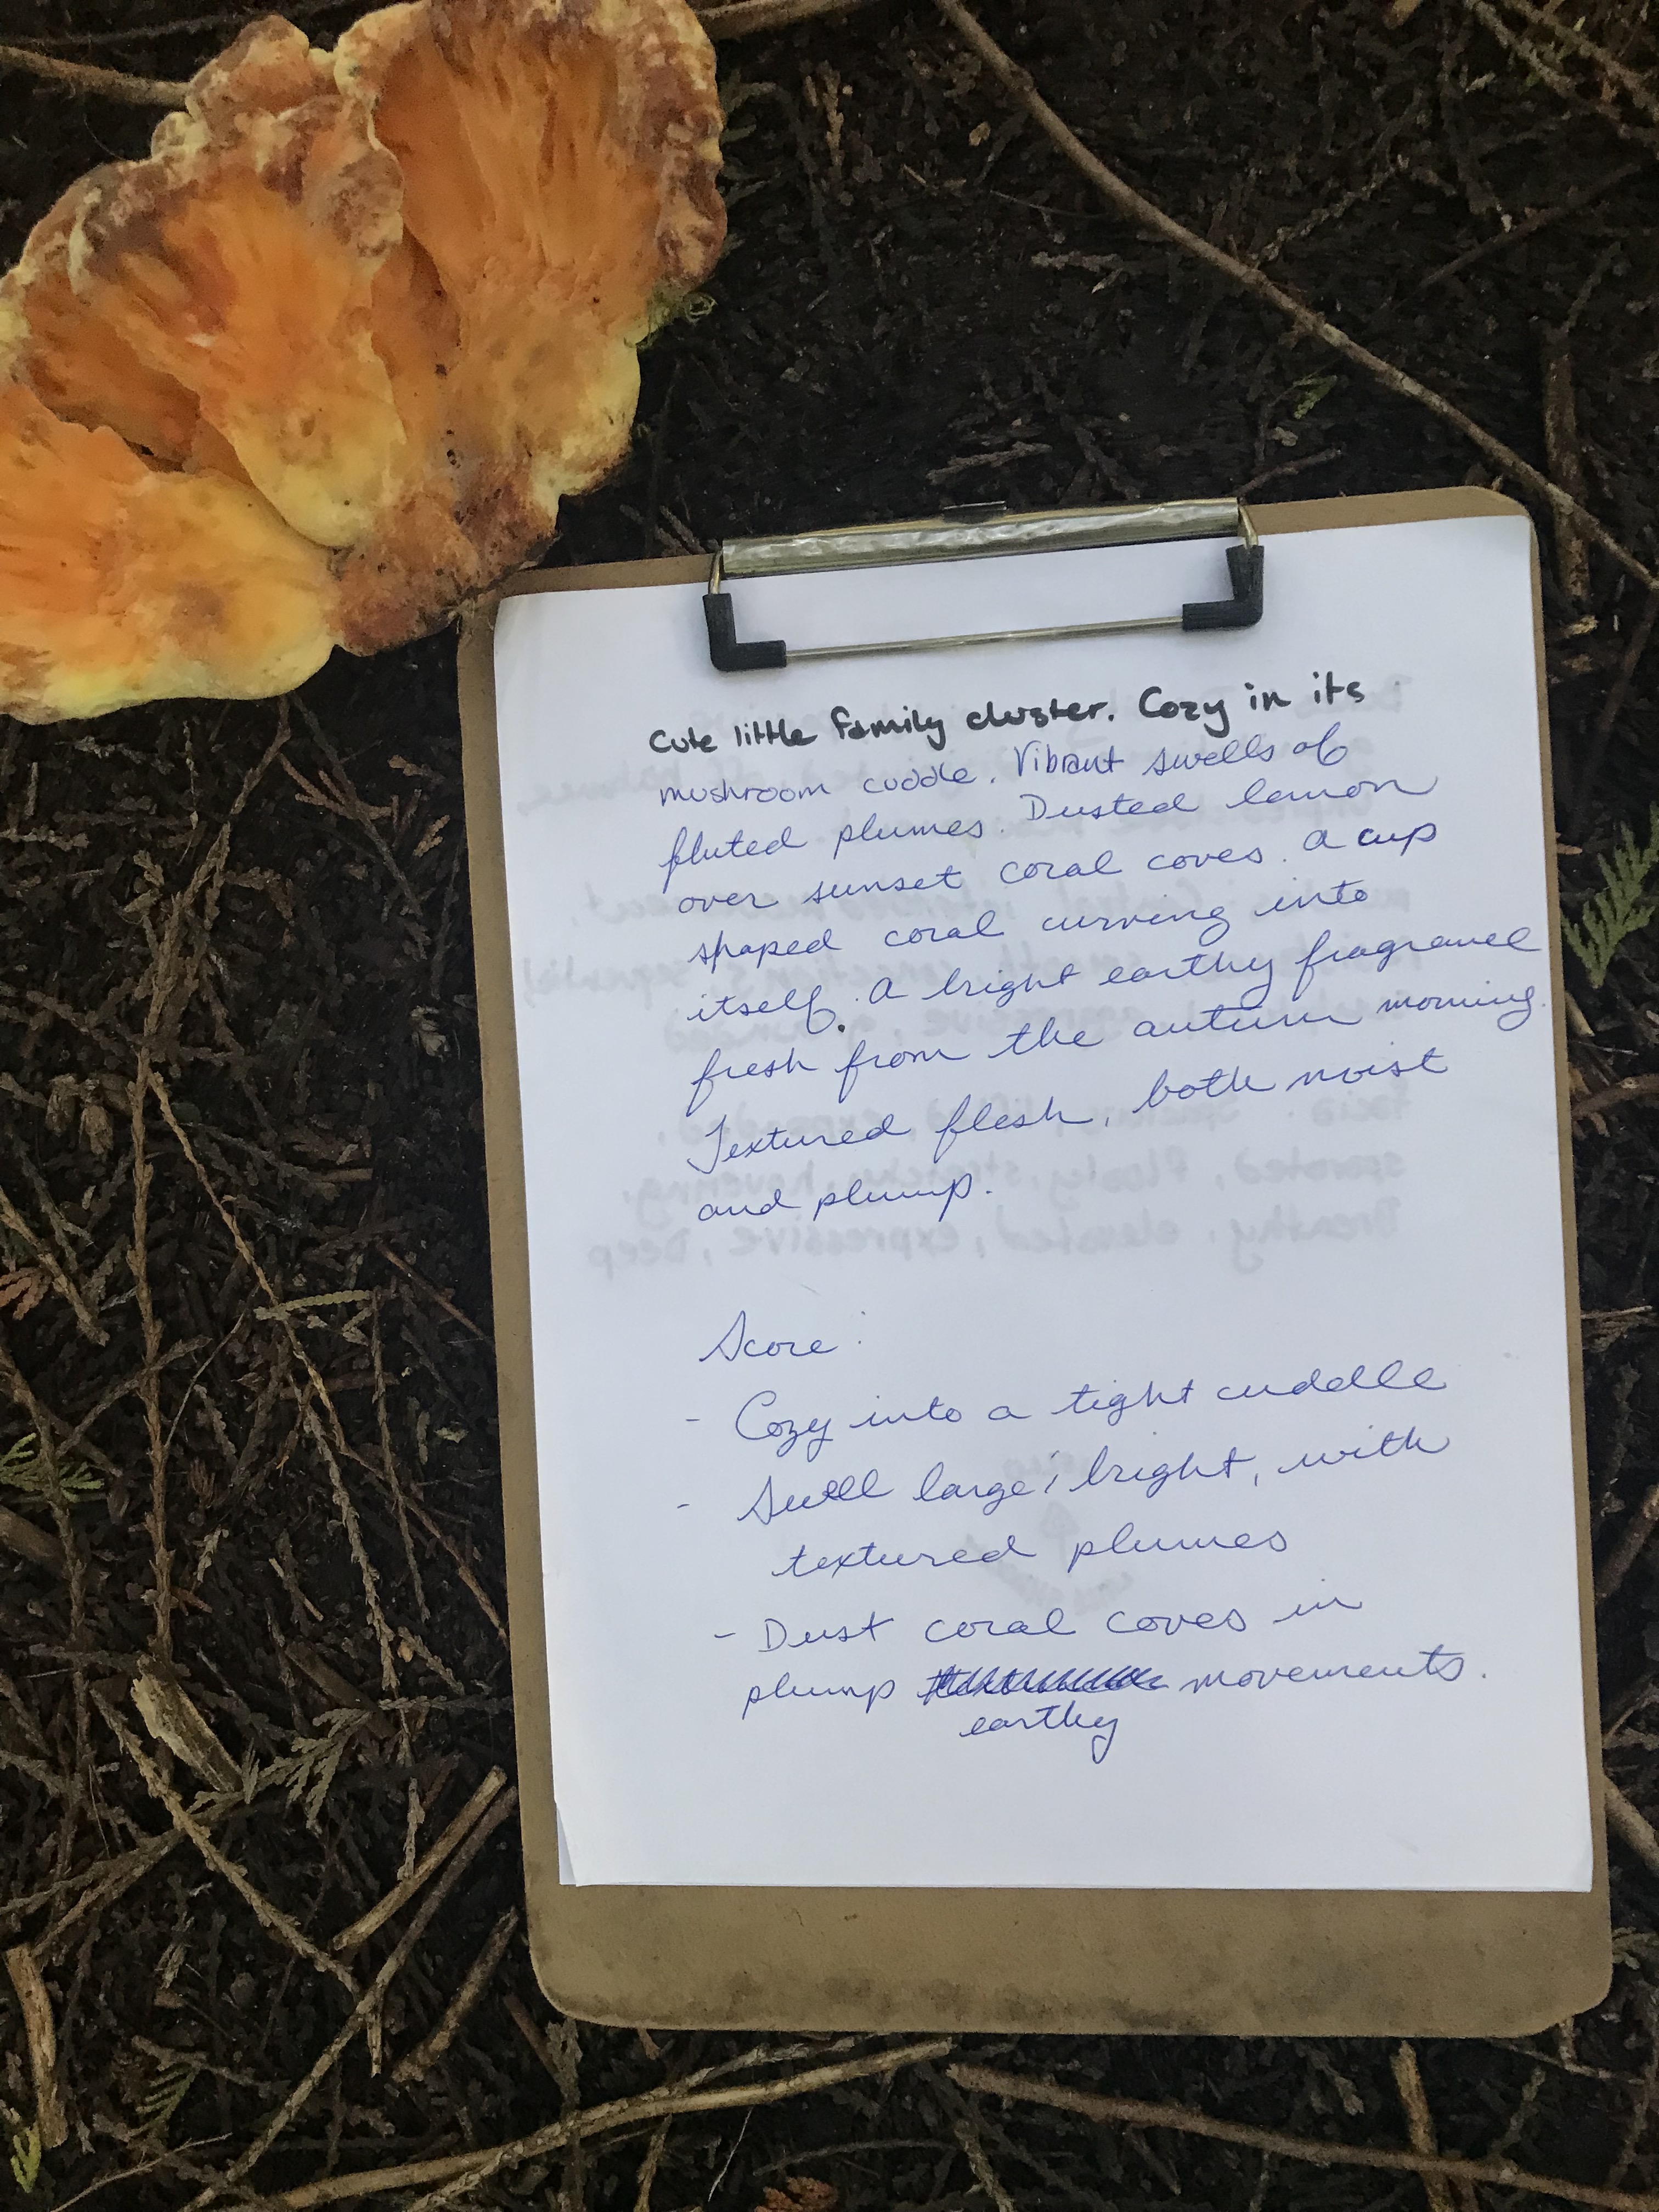 Cute little family cluster. Cozy in its
mushroom cuddle. Vibrant swells of
fluted plumes. Dusted lemon
over sunset coral coves. A cup
shaped coral curving into
itself. A bright earthy fragrance
fresh from the autumn morning.
Textured flesh, both moist
and plump.
Score:
- Cozy into a tight cuddle
- Swell large, bright, with
textured plumes
- Dust coral coves in
plump movements.
earthy